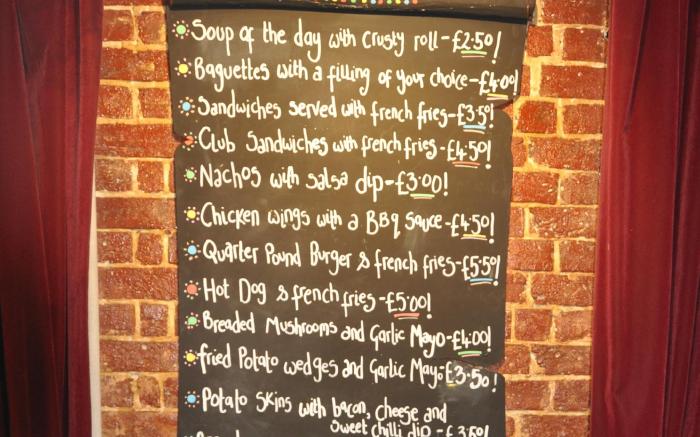 Soup of the day with crusty roll-£2.50!
Baguettes with a filling of your choice-£4.00!
Sandwiches served with french fries-£3.50!
Club Sandwiches with french fries-£4.50!
Nachos with salsa dip-£3.00!
Chicken wings with a BBQ sauce-£4.50!
Quarter Pound Burger & french fries-£5.50!
Hot Dog & french fries-£5.00!
Breaded Mushrooms and Garlic Mayo-£4.00!
fried Potato wedges and Garlic Mayo-£3.50!
Potato Skins with bacon, cheese and
sweet chilli dip-£3.50!